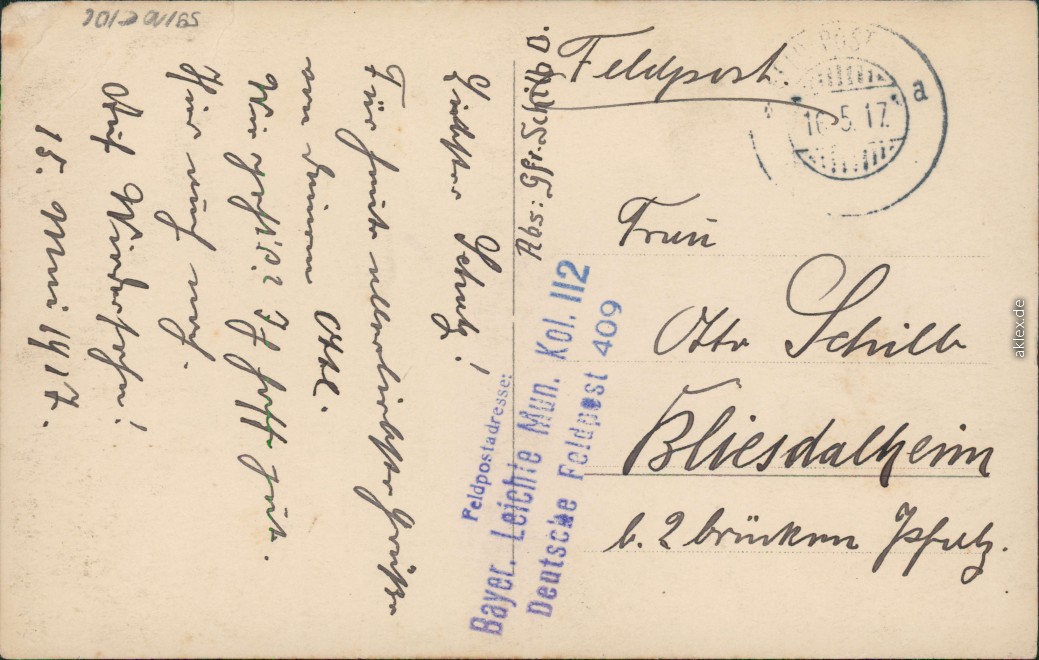 Feldpost
POST
a
16.5.17.
Abs: Gfr. Schilb O.
Feldpostadresse:
Bayer. Leichte Mun. Kol. 112
Deutsche Feldpost 409
Frau
Otto Schilb
Bliesdalheim
b. 2brücken Pfalz.
Liebster Schatz!
Für heute allerliebste Grüße
von deinem Otto.
Wie geht's? Ich hoffe gut.
Hier auch.
Auf Wiedersehn!
15. Mai 1917.
aklex.de